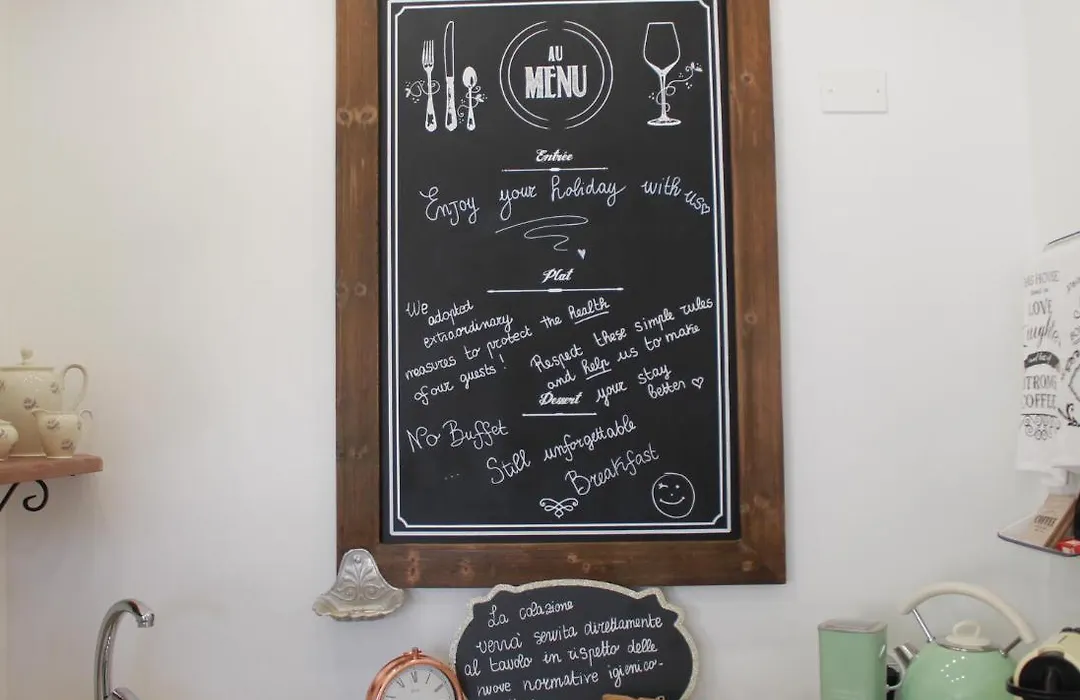 AU
MENU
Entrée
Enjoy your holiday with us
Plat
We adopted
extraordinary
measures to protect the health
of our guests!
Respect these simple rules
and help us to make
your stay
better
Dessert
No Buffet
... Still unforgettable
Breakfast
La colazione
verrà servita direttamente
al tavolo in rispetto delle
nuove normative igienico-
HOUSE
LOVE
Laughter
STRONG
COFFEE
COFFEE